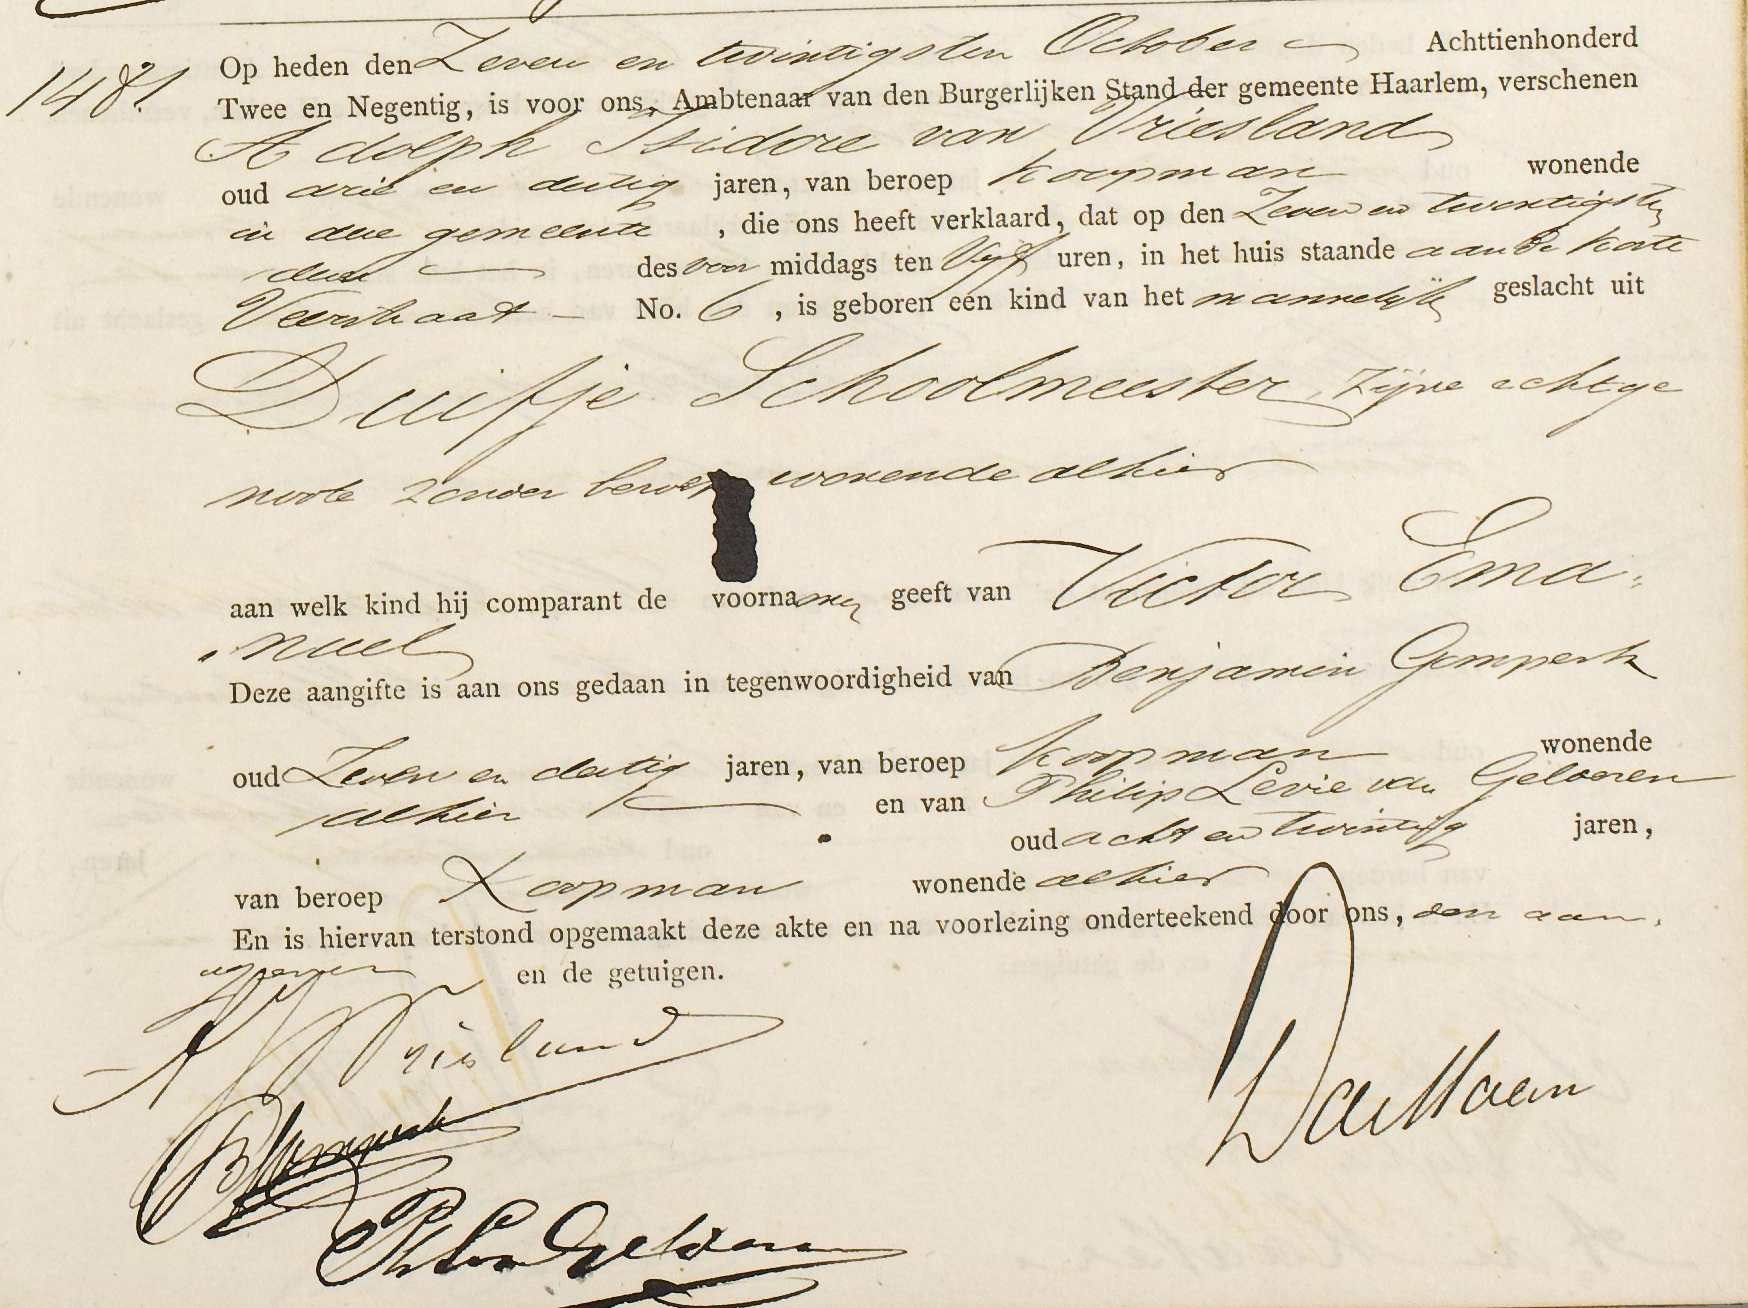 1481.
Op heden den Zeven en twintigsten October Achttienhonderd
Twee en Negentig, is voor ons, Ambtenaar van den Burgerlijken Stand der gemeente Haarlem, verschenen
Adolph Isidore van Vriesland
oud drie en dertig jaren, van beroep koopman wonende
in deze gemeente, die ons heeft verklaard, dat op den Zeven en twintigsten
dezer des voor middags ten Vijf uren, in het huis staande aan de Korte
Veerstraat No. 6, is geboren een kind van het mannelijk geslacht uit
Duifje Schoolmeester, zijne echtge
noote zonder beroep wonende alhier
aan welk kind hij comparant de voornamen geeft van Victor Ema„
„nuel
Deze aangifte is aan ons gedaan in tegenwoordigheid van Benjamin Gompertz
oud Zeven en dertig jaren, van beroep koopman wonende
alhier en van Philip Levie van Gelderen
oud acht en twintig jaren,
van beroep Koopman wonende alhier
En is hiervan terstond opgemaakt deze akte en na voorlezing onderteekend door ons, den aan„
gever en de getuigen.
A J v Vriesland
B Gompertz
Ph L van Gelderen